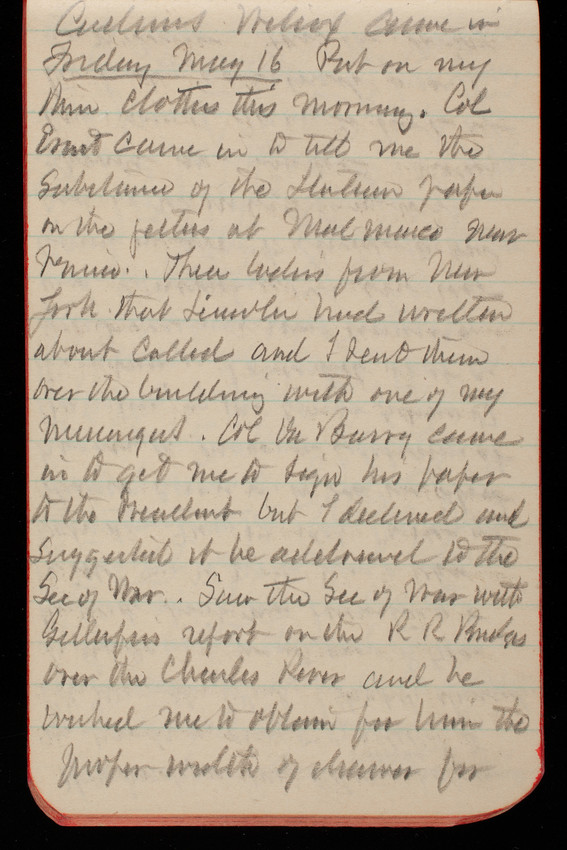 Wilcox came in
Friday May 16 Put on my
thin clothes this morning. Col
Ernst came in to tell me the
substance of the Italian paper
on the jetties at Malamocco near
Venice.. Three ladies from New
York that Lincoln had written
about called and I sent them
over the building with one of my
messengers. Col Du Barry came
in to get me to sign his paper
to the President but I declined and
suggested it be addressed to the
Sec of War.. Saw the Sec of War with
Gillespies report on the R R Bridges
over the Charles River and he
wished me to obtain for him the
proper width of draws for